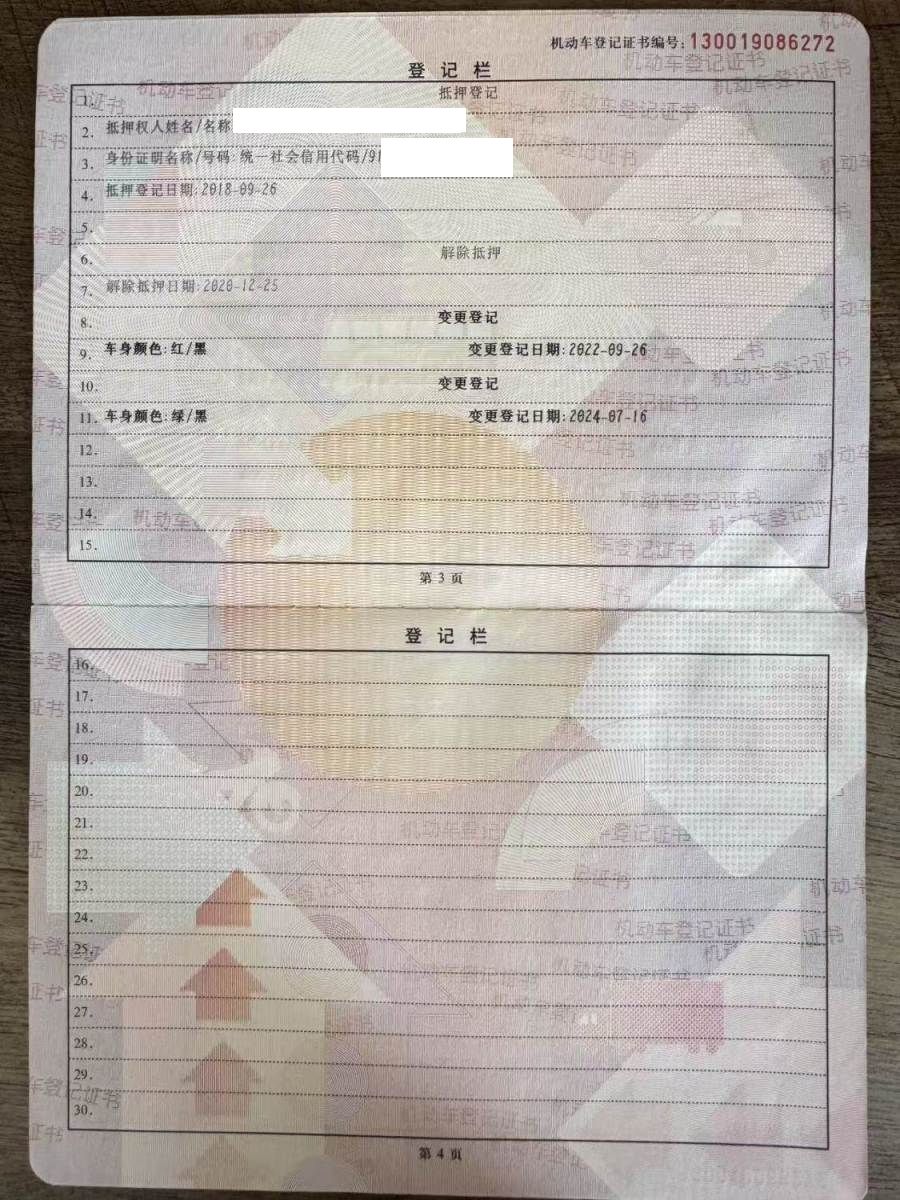 机动车登记证书编号:130019086272
登记栏
1. 抵押登记
2. 抵押权人姓名/名称
3. 身份证明名称/号码:统一社会信用代码/91
4. 抵押登记日期:2018-09-26
5.
6. 解除抵押
7. 解除抵押日期:2020-12-25
8. 变更登记
9. 车身颜色:红/黑 变更登记日期:2022-09-26
10. 变更登记
11. 车身颜色:绿/黑 变更登记日期:2024-07-16
12.
13.
14.
15.
第 3 页
登记栏
16.
17.
18.
19.
20.
21.
22.
23.
24.
25.
26.
27.
28.
29.
30.
第 4 页